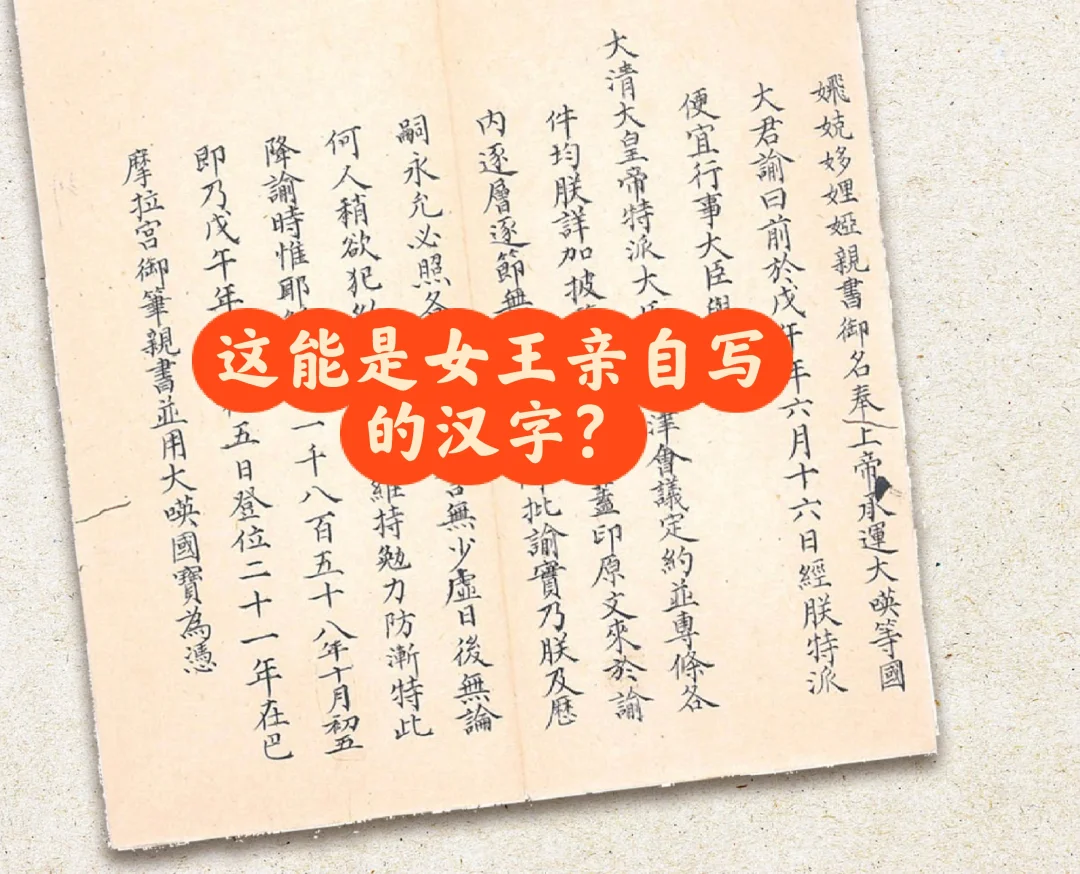 娔姼娌婭親書御名奉上帝承運大𠸄等國
大君諭曰前於戊午年六月十六日經朕特派
便宜行事大臣與
大清大皇帝特派大津會議定約並專條各
件均朕詳加披蓋印原文來於諭
內逐層逐節無批諭實乃朕及歷
嗣永允必照各無少虛日後無論
何人稍欲犯維持勉力防漸特此
降諭時惟耶一千八百五十八年十月初五
即乃戊午年五日登位二十一年在巴
摩拉宮御筆親書並用大𠸄國寶為憑
这能是女王亲自写
的汉字？